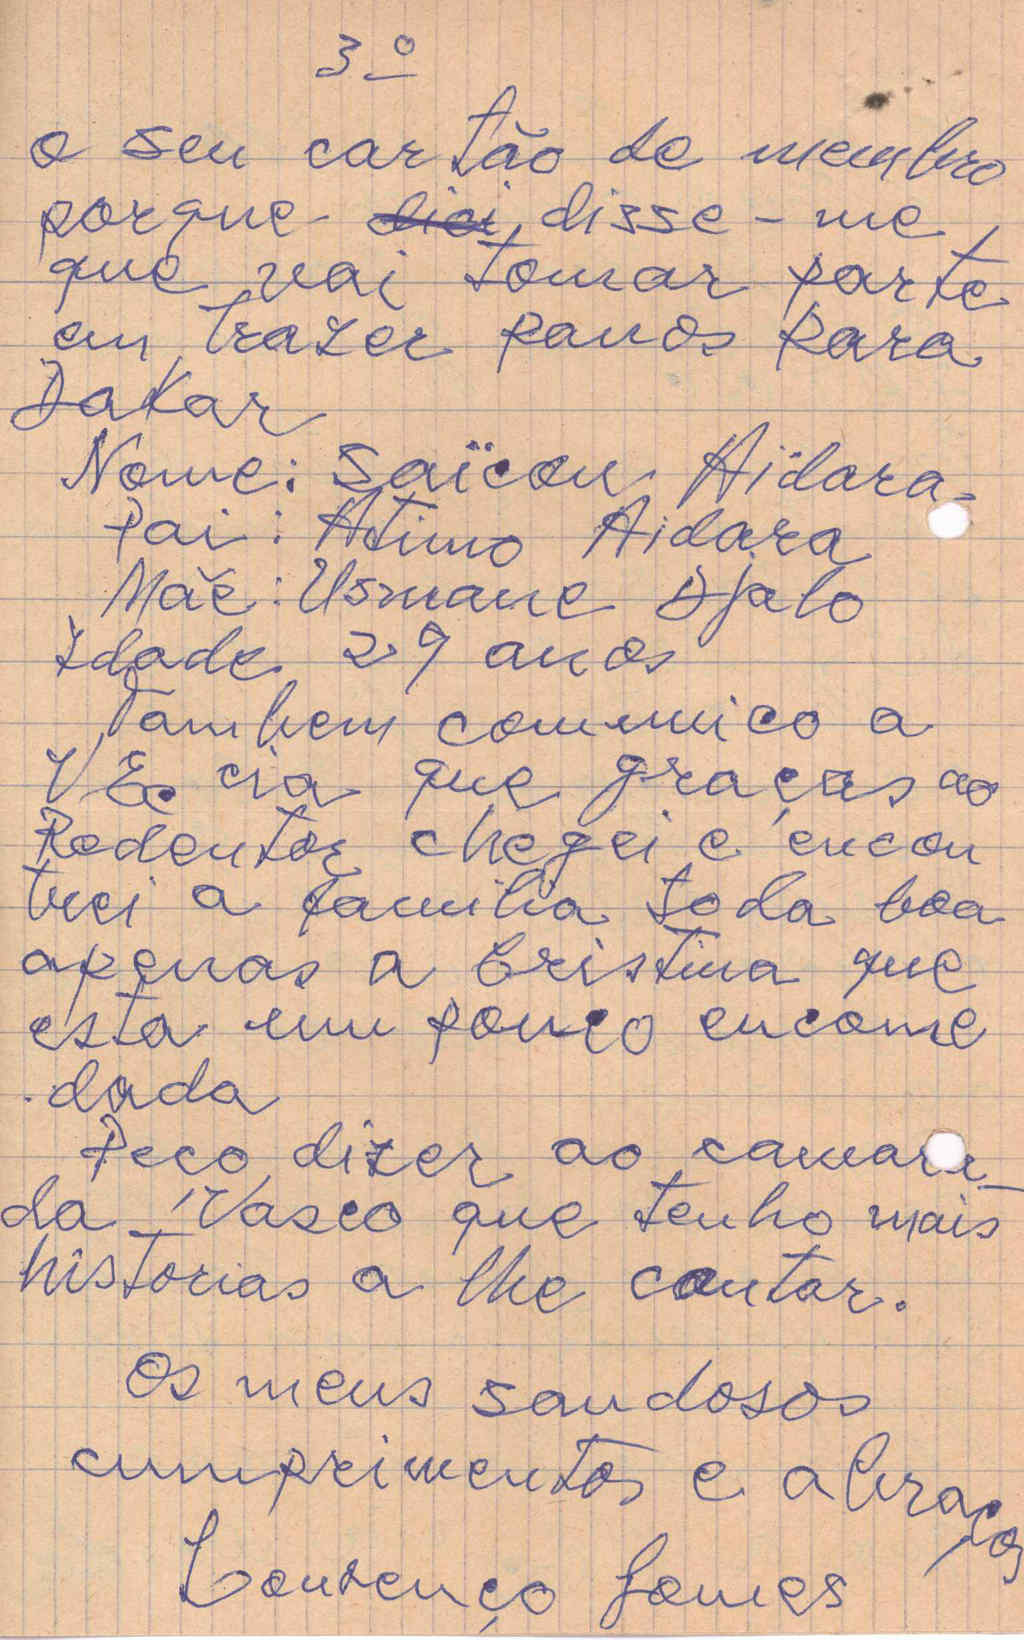 3º
o seu cartão de membro
porque disse-me
que vai tomar parte
em trazer panos para
Dakar
Nome: Saïcou Aïdara
Pai: Atimo Aidara
Mãe: Usmane Djalo
Idade 29 anos
Tambem comunico a
V Ex. cia que graças ao
Redentor chegei e encon
trei a familia toda boa
apenas a Cristina que
esta um pouco encome
dada
Peço dizer ao camara
da Vasco que tenho mais
historias a lhe contar.
Os meus saudosos
cumprimentos e abraços
Lourenço Gomes